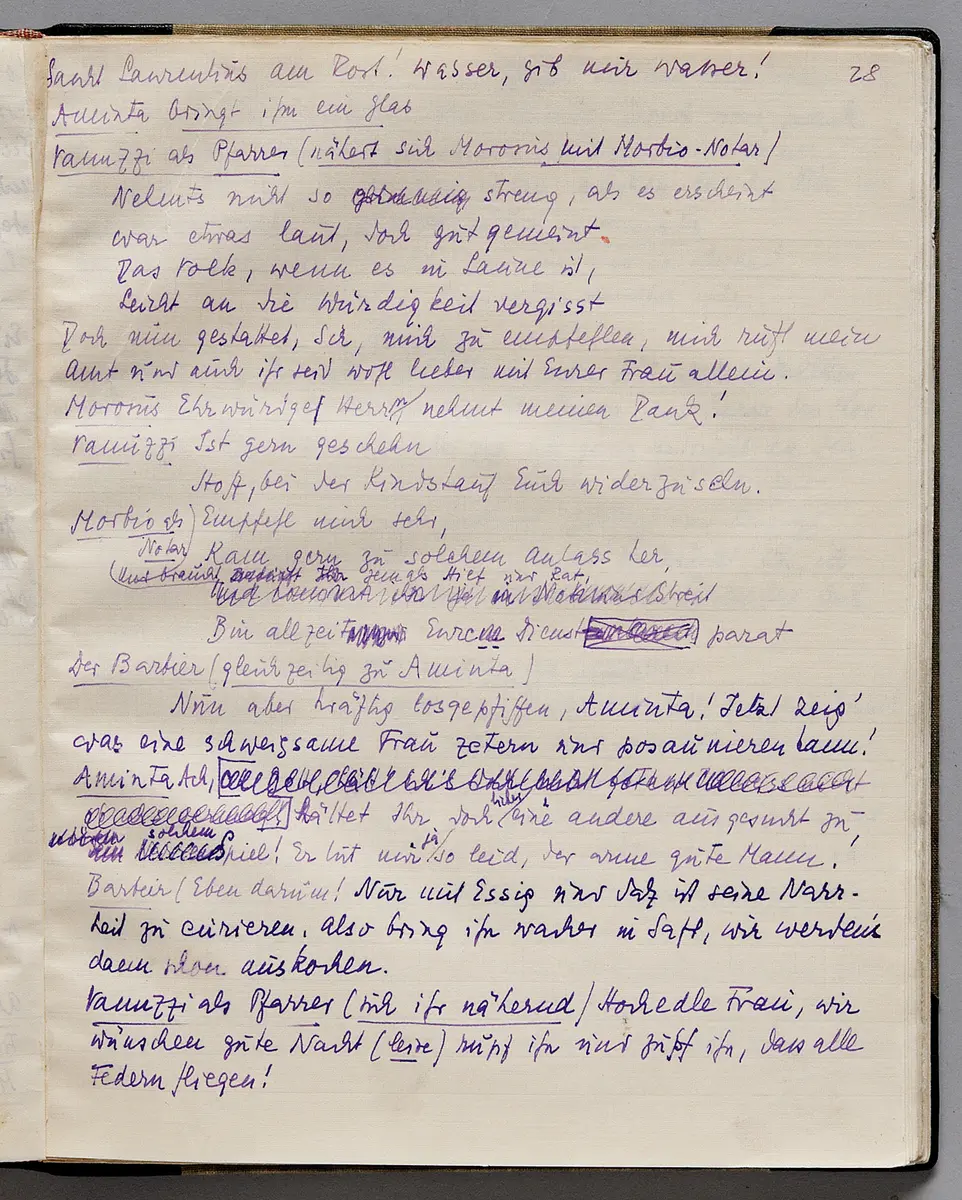 Sankt Laurentius am Rost! Wasser, gib mir Wasser! 28
Aminta bringt ihm ein Glas
Vanuzzi als Pfarrer (nähert sich Morosus mit Morbio-Notar)
Nehmts nicht so streng, als es erscheint
War etwas laut, doch gut gemeint.
Das Volk, wenn es in Laune ist,
Leicht an die Würdigkeit vergisst
Doch nun gestattet, Sir, mich zu empfehlen, mich ruft mein
Amt und auch ihr seid wohl lieber mit Eurer Frau allein.
Morosus Ehrwürdiger Herr, nehmt meinen Dank!
Vanuzzi Ist gern geschehn
Hoff, bei der Kindstauf Euch widerzusehn.
Morbio als Empfehl mich sehr,
Notar Kam gern zu solchem Anlass her,
(Und braucht Ihr jemals Hilf und Rat,
Bin allzeit Eurem Dienst parat
Der Barbier (gleichzeitig zu Aminta)
Nun aber kräftig losgepfiffen, Aminta! Jetzt zeig'
was eine schweigsame Frau zetern und posaunieren kann!
Aminta Ach,
hättet Ihr doch lieber eine andere ausgesucht zu
solchem Spiel! Er tut mir ja so leid, der arme gute Mann!
Barbier (Eben darum! Nur mit Essig und Salz ist seine Narr-
heit zu curieren. Also bring ihn wacker in Saft, wir werden's
dann schon auskochen.
Vanuzzi als Pfarrer (sich ihr nähernd) Hochedle Frau, wir
wünschen gute Nacht (leise) rupf ihn und zupf ihn, dass alle
Federn fliegen!